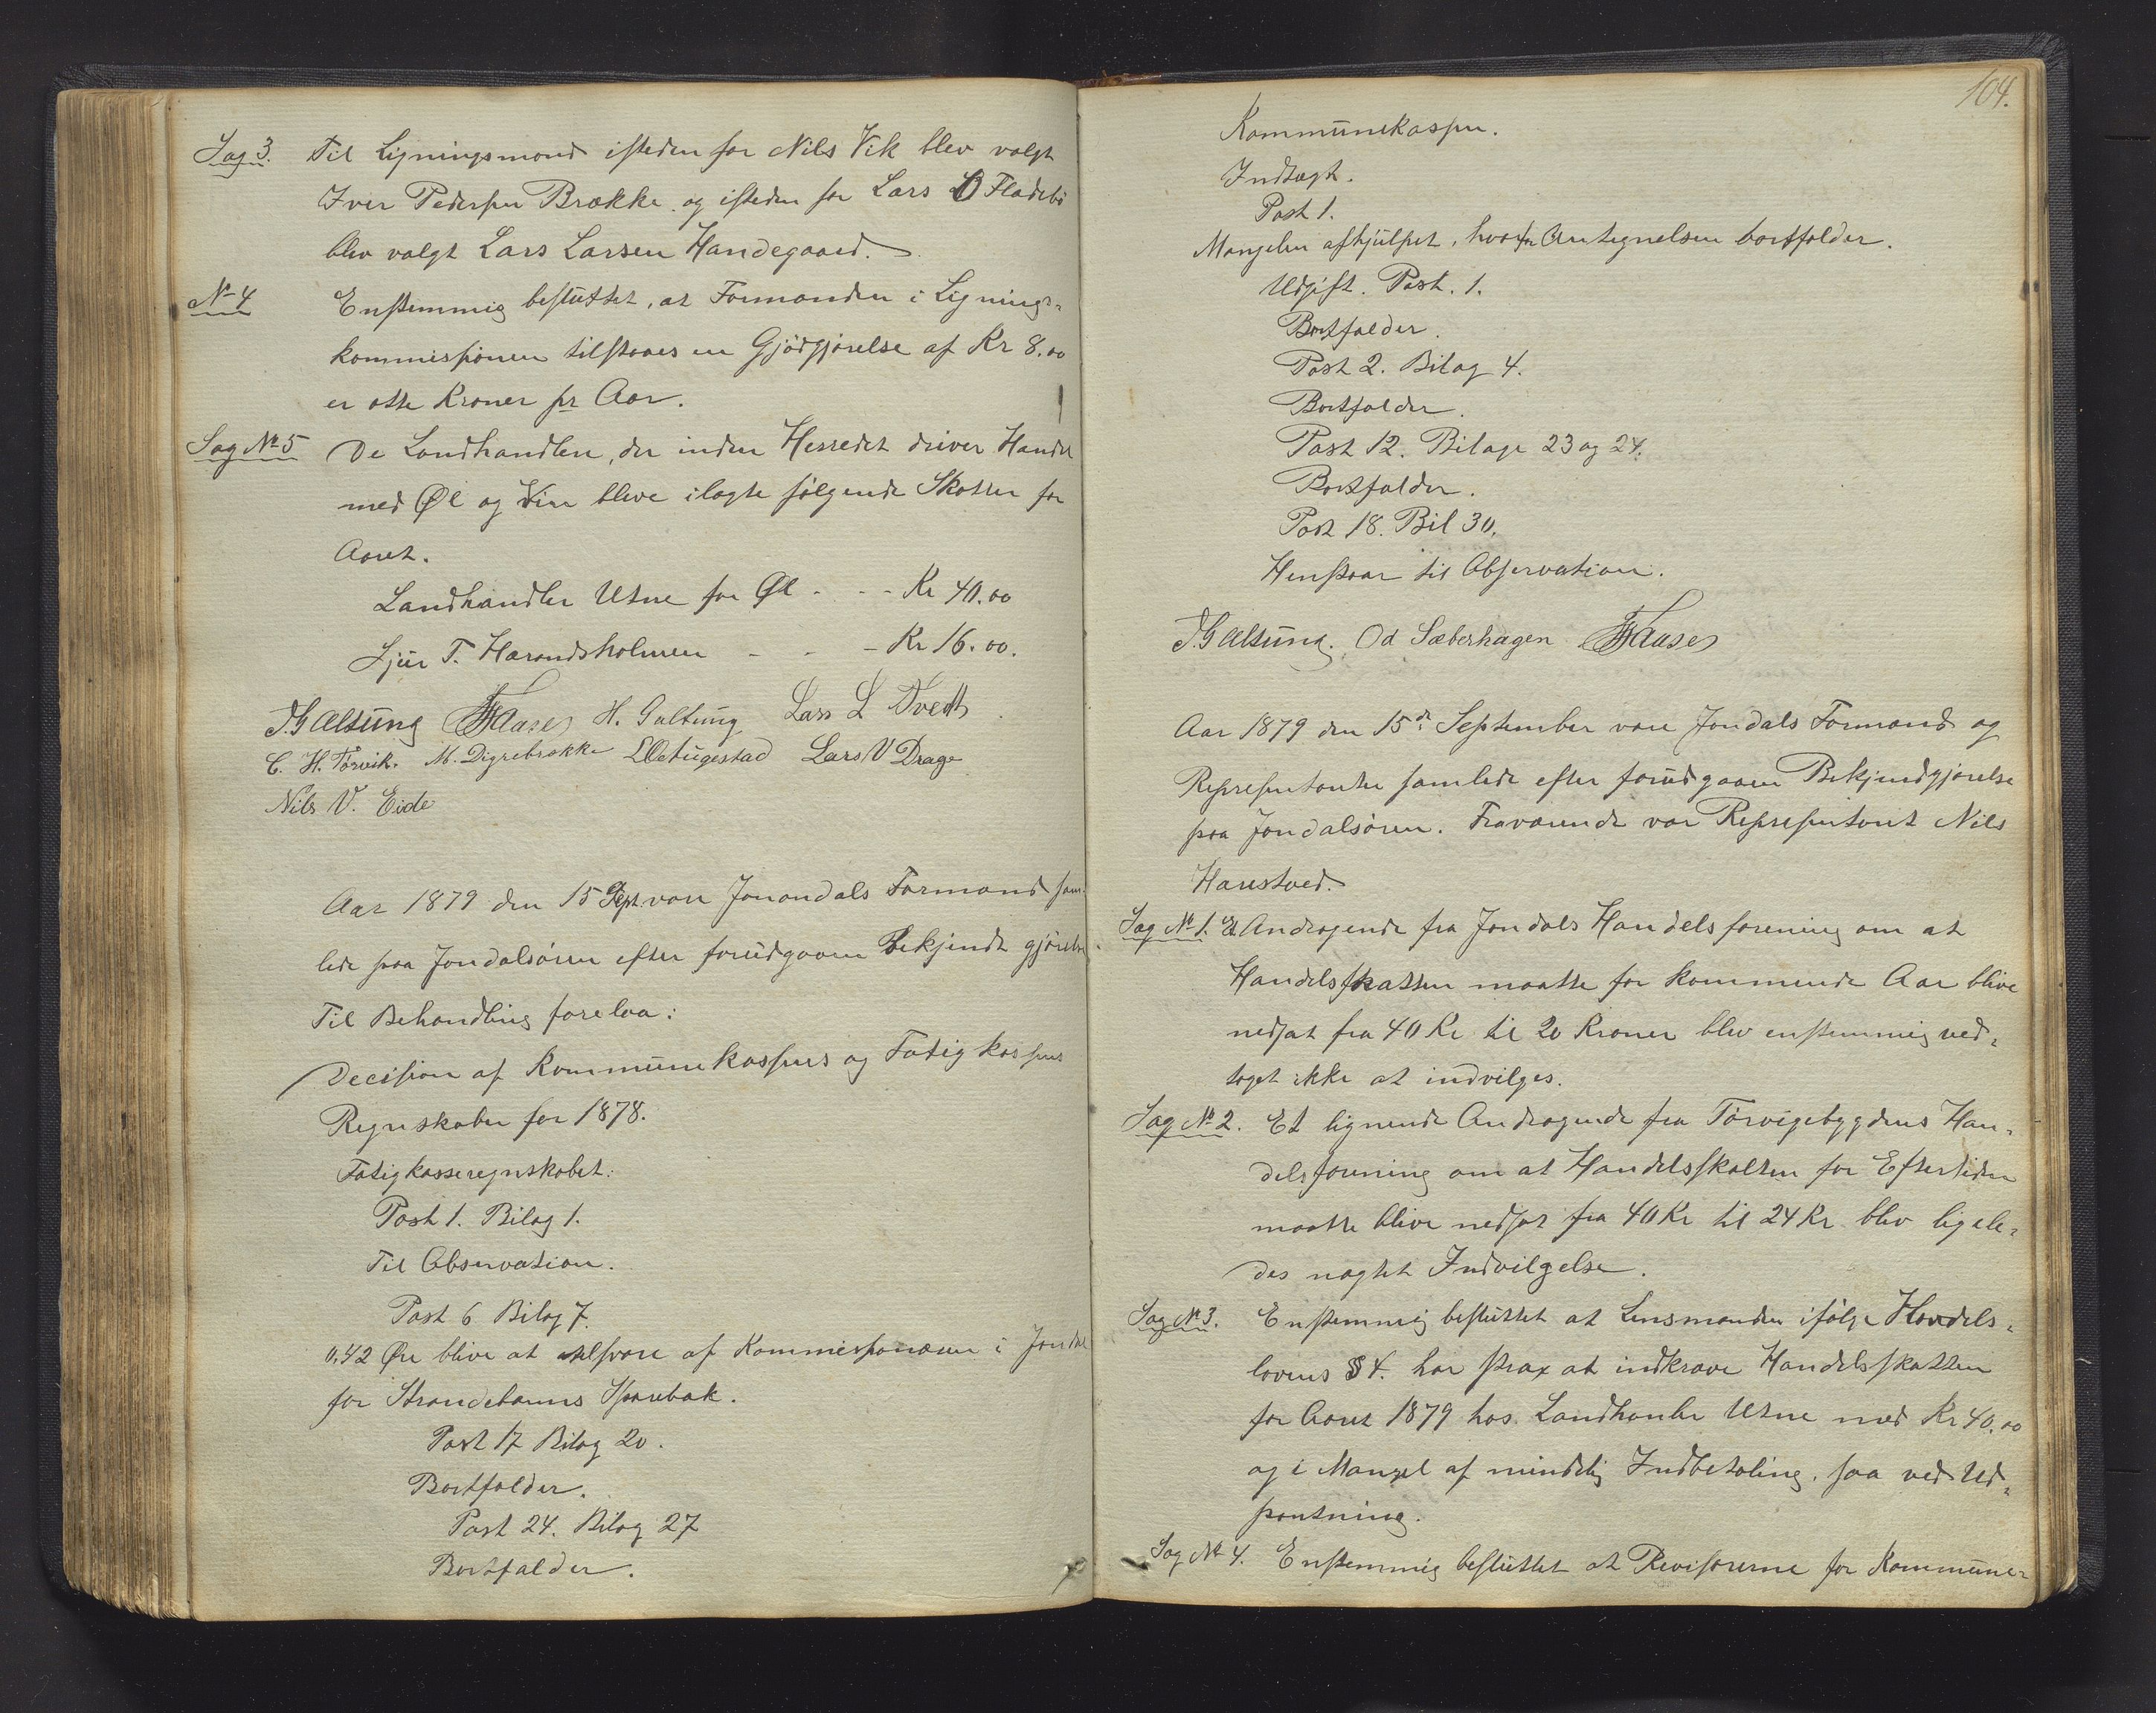 Sag 3. Til Ligningsmand isteden for Nils Vik blev valgt
Iver Pedersen Brække og isteden for Lars O Fladebö
blev valgt Lars Larsen Handegaard.
No 4 Enstemmig besluttet, at Formanden i Lignings-
kommissionen tilstaaes en Gjödgjörelse af Kr 8.00
er otte Kroner pr Aar.
Sag No 5 De Landhandlere, der inden Herredet driver Handel
med Øl og Vin bleve ilagte følgende Skatter for
Aaret.
Landhandler Utne for Øl - - - Kr 40.00
Sjur T. Harandsholmen - - - Kr 16.00.
H. Galtung Lars L Tvedt
C. H. Törvik. M. Digrebrække Lars V Drage
Nils V. Eide
Aar 1879 den 15 Sept. vare Jonondals Formand sam-
lede paa Jondalsören efter forudgaaen Bekjendt gjörelse.
Til Behandling forelaa:
Decision af Kommunekassens og Fatigkassens
Regnskaber for 1878.
Fatigkasseregnskabet:
Post 1. Bilag 1.
Til Observation.
Post 6 Bilag 7.
0,42 Øre blive at tilsvare af Kommissionæren i Jondal
for Strandebarms Sparebak.
Post 17 Bilag 20.
Bortfalder.
Post 24. Bilag 27
Bortfalder.
104.
Kommunekassen.
Indtægt.
Post 1.
Mangelen afhjulpet, hvorfor Antegnelsen bortfalder.
Udgift. Post. 1.
Bortfalder.
Post 2. Bilag 4.
Bortfalder.
Post 12. Bilage 23 og 24.
Bortfalder.
Post 18. Bil 30.
Henstaar til Observation.
Od Sæberhagen
Aar 1879 den 15de September vare Jondals Formand og
Repræsentanter samlede efter forudgaaen Bekjendgjörelse
paa Jondalsören. Fraværende var Repræsentant Nils
Haustved.
Sag No 1. Et Andragende fra Jondals Handelsforening om at
Handelsskatten maatte for kommende Aar blive
nedsat fra 40 Kr til 20 Kroner blev enstemmig ved-
taget ikke at indvilges.
Sag No 2. Et lignende Andragende fra Törvigebygdens Han-
delsforening om at Handelsskatten for Eftertiden
maatte blive nedsat fra 40 Kr til 24 Kr blev ligele-
des nægtet Indvilgelse.
Sag No 3. Enstemmig besluttet at Lensmanden ifölge Handels-
lovens § 4. har strax at indkræve Handelsskatten
for Aaret 1879 hos Landhanler Utne med Kr 40.00
og i Mangel af mindelig Indbetaling. saa ved Ud-
pantning.
Sag No 4. Enstemmig besluttet at Revisorerne for Kommune-